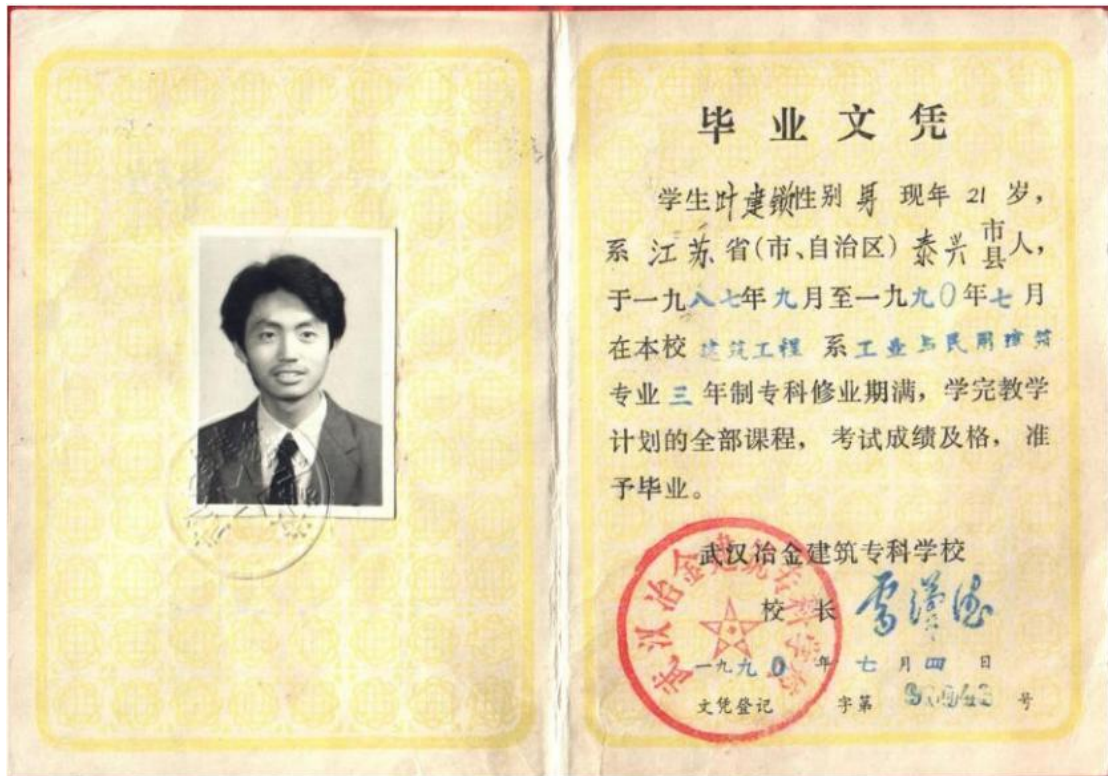 毕业文凭
学生叶建锁性别男现年21岁，
系江苏省(市、自治区)泰兴市县人，
于一九八七年九月至一九九0年七月
在本校建筑工程系工业与民用建筑
专业三年制专科修业期满，学完教学
计划的全部课程，考试成绩及格，准
予毕业。
武汉冶金建筑专科学校
校长
武汉冶金建筑专科学校
一九九0年七月四日
文凭登记 字第 号